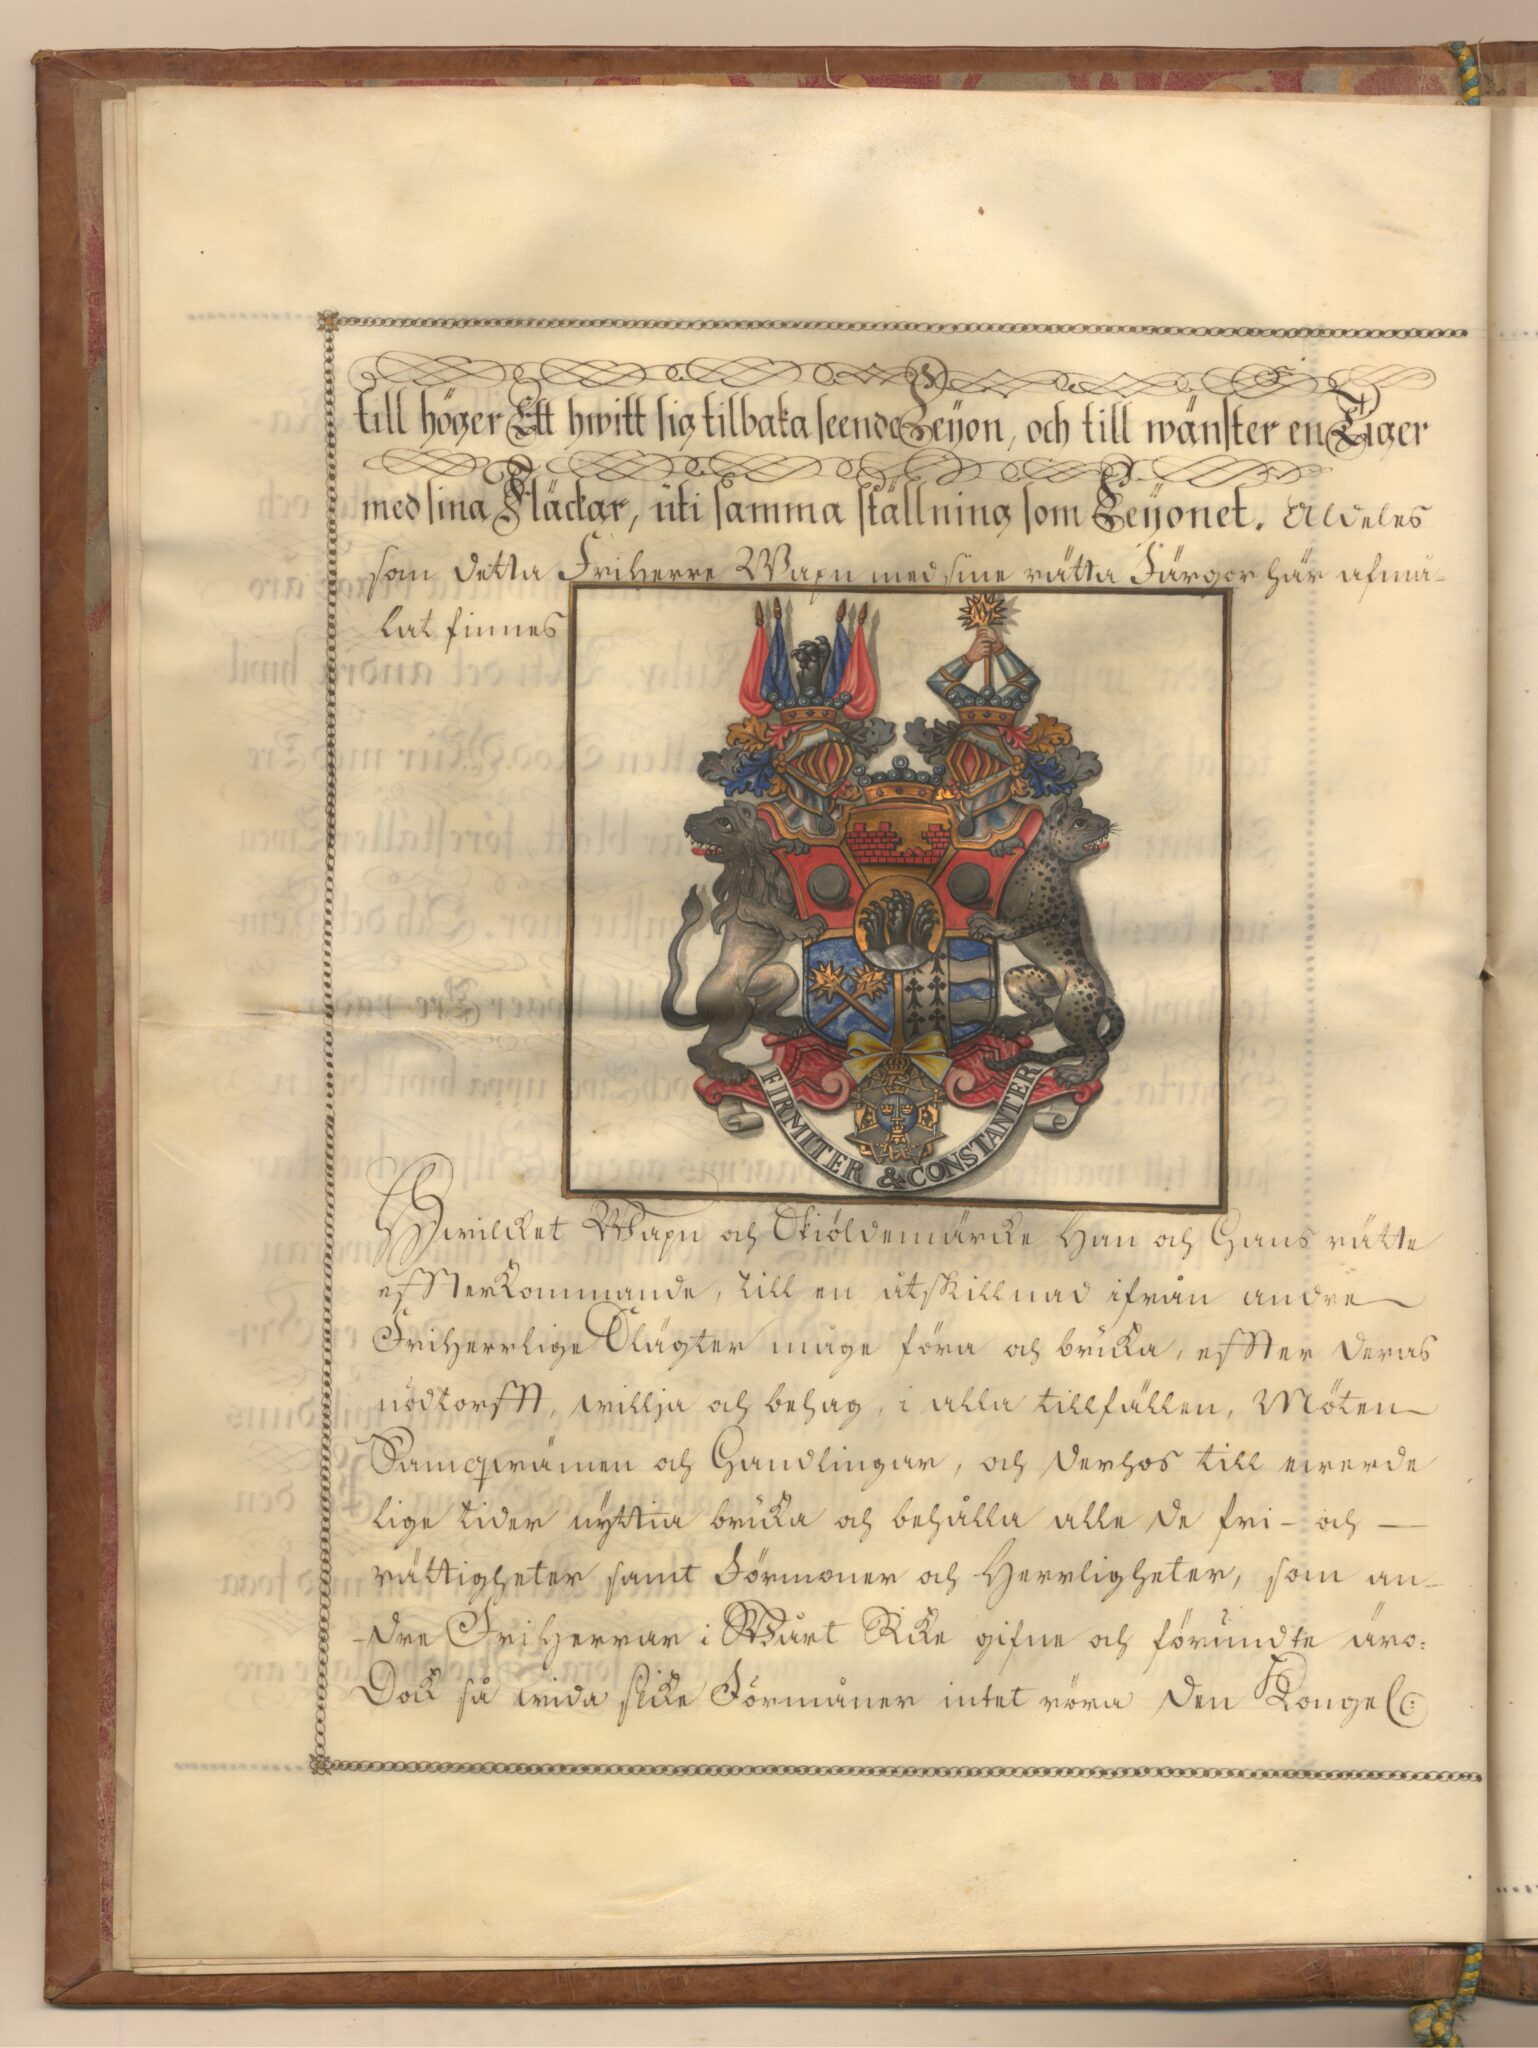 till höger Ett hwitt sig tilbaka seende Leijon, och till wänster en Tiger
med sina Fläckar, uti samma ställning som Leijonet. Aldeles
som detta Friherre Wapn med sine rätta Färgor här afmå-
lat finnes
FIRMITER & CONSTANTER
Hwilcket Wapn och Skiöldemärcke Han och Hans rätte
effterkommande, till en åtskillnad ifrån andre
Friherrlige Slägter måge föra och bruka, effter deras
nödtorfft, willja och behag, i alla tillfällen, Möten
Samqwämen och Handlingar, och derhos till ewerde
lige tider nyttia bruka och behålla alle de fri- och
rättigheter samt Förmoner och Herrligheter, som an-
-dre Friherrar i Wårt Rike gifne och förundte äro:
Dock så wida slike Förmåner intet röra den Kongel: